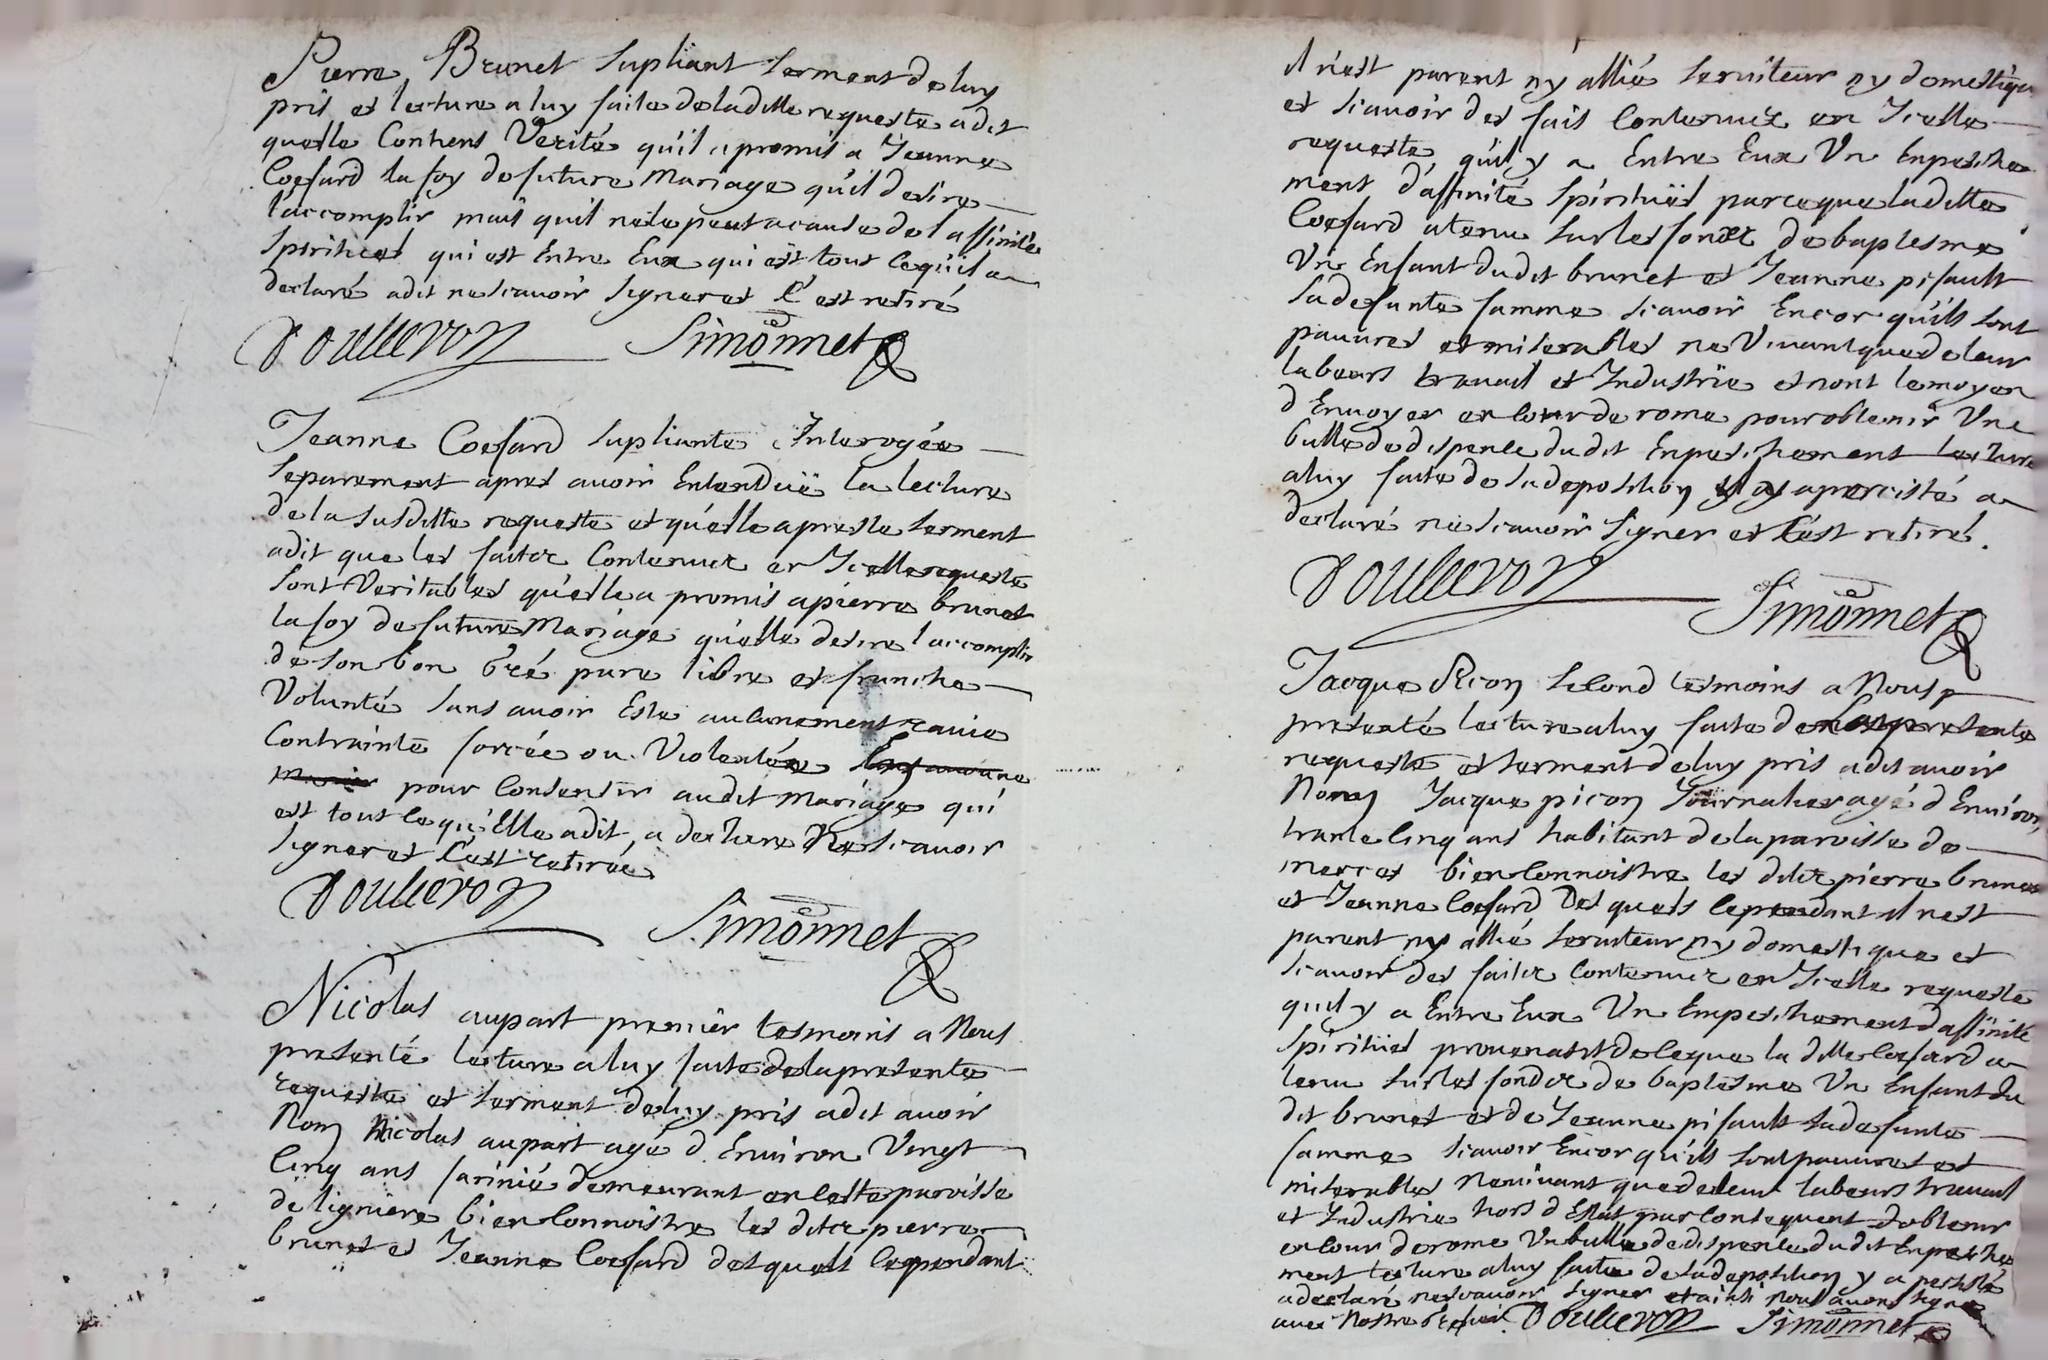 Pierre Brunet supliant serment de luy
pris et lecture a luy faite de laditte requeste a dit
quelle Contiens Verité qu'il a promis a Jeanne
Coesard la foy de future Mariage qu'il desire
l'accomplir mais quil ne le peut a cause de l'affinité
spirituel qui est Entre Eux qui est tout ce qu'il a
declaré a dit ne scavoir signer et c'est retiré
Doulleron Simonnet
Jeanne Coesard supliante Interogée
separement apres avoir Entenduë la lecture
de la susditte requeste et qu'elle a preste serment
a dit que les faitz Contenuz en Icelle requeste
sont Veritables qu'elle a promis a pierre brunet
la foy de future Mariage qu'elle desire l'accomplir
de son bon Gré pure libre et franche
Volunté sans avoir Este aucunement ravie
Contrainte forcée ou Violentée
pour Consentir audit Mariage qui
est tout ce qu'Elle a dit, a declare Ne scavoir
signer et c'est retirée
Doulleron
Simonnet
Nicolas aupart premier tesmoins a Nous
presenté lecture a luy faite de la presente
requeste et serment de luy pris a dit avoir
Nom Nicolas aupart agé d'Environ Vingt
Cinq ans farinié demeurant en cette paroisse
de ligniere bien Connoistre les ditz pierre
brunet et Jeanne Coesard desquels Cependant
il n'est parent ny allié serviteur ny domestique
et scavoir des fais Contenuz en Icelle
requeste, qu'il y a Entre Eux Un Enpesche
ment d'affinité spirituël parceque laditte
Coesard a tenu sur les fondz de baptesme
Un Enfant dudit brunet et Jeanne pisault
sa defunte famme scavoir Encor qu'ils sont
pauvres et miserables ne Vivant que de leur
labeurs travail et Industrïe et n'ont le moyen
d'Envoyer en Cour de rome pour obtenir Une
bulle de dispence dudit Enpeschement lecture
a luy faite de sa deposition y a percisté a
declaré ne scavoir signer et c'est retiré.
Doulleron
Simonnet
Jacque Picon second tesmoins a Nous
presenté lecture a luy faite de la presente
requeste et serment de luy pris a dit avoir
Nom Jacque picon Journalier agé d'Environ
trante Cinq ans habitant de la paroisse de
bien Connoistre les ditz pierre brunet
et Jeanne Coesard Desquels Cependant il n'est
parent ny allié serviteur ny domestique et
scavoir des faitz Contenuz en Icelle requeste
quil y a Entre Eux Un Empeschement d'affinité
spirituel provenant de ceque la ditte Coesard a
tenu sur les fondz de baptesme Un Enfant du
dit brunet et de Jeanne pisault sa defunte
famme scavoir Encor qu'ils sont pauvres et
miserables Ne vivant que de leur labeurs travail
et Industrie hors d'Estat par Consequent d'obtenir
en Cour de rome Un bulle de dispence dudit Enpesche
ment lecture a luy faite de sa deposition y a persisté
a declaré ne scavoir signer et ainsi Nous avons signé
avec Nostre Greffier. Doulleron Simonnet